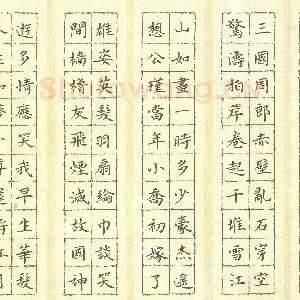 三國周郎赤壁亂石穿空
驚濤拍岸卷起千堆雪江
山如畫一時多少豪傑遙
想公瑾當年小喬初嫁了
雄姿英發羽扇綸巾談笑
間檣櫓灰飛煙滅故國神
遊多情應笑我早生華髮